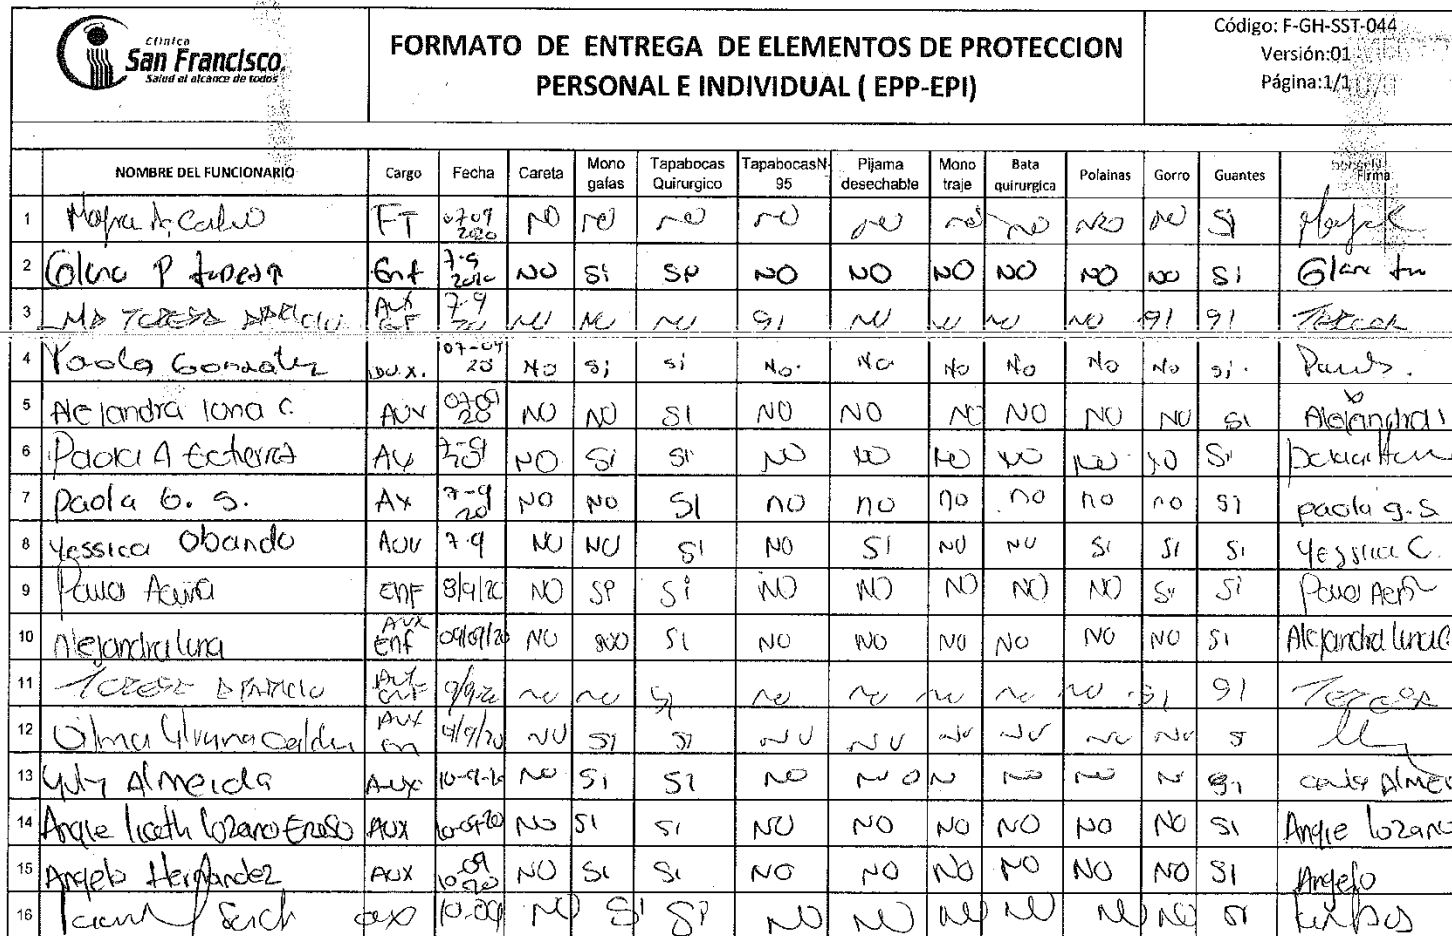 Clínica
San Francisco.
Salud al alcance de todos
FORMATO DE ENTREGA DE ELEMENTOS DE PROTECCION
PERSONAL E INDIVIDUAL ( EPP-EPI)
Código: F-GH-SST-044
Versión:01
Página:1/1
NOMBRE DEL FUNCIONARIO Cargo Fecha Careta Mono gafas Tapabocas Quirurgico TapabocasN-95 Pijama desechable Mono traje Bata quirurgica Polainas Gorro Guantes Firma
1 FT 07 09 2020 NO NO NO NO NO NO NO NO NO SI
2 Enf 7-9 2020 NO Si NO NO NO NO NO NO SI
3 TERESA APARICIO AUX 7-9 20 NO NO NO SI NO NO NO NO SI SI
4 Paola Gonzalez AUX. 07-09 20 No Si Si No. No No No No No Si.
5 Alejandra luna C. AUX 07-09 20 NO NO SI NO NO NO NO NO NO SI Alejandra
6 Paola A 7-9 20 NO SI SI NO NO NO NO NO NO SI
7 Paola G. S. AX 7-9 20 NO NO SI no no no no no no SI paola g. S
8 Yessica Obando AUX 7-9 NO NO SI NO SI NO NO SI SI SI Yessica C.
9 ENF 8/9/20 NO Si NO NO NO NO NO SI Si
10 Alejandra luna AUX Enf 09/09/20 NO NO SI NO NO NO NO NO NO SI Alejandra luna C
11 TERESA APARICIO AUX ENF 9/9/20 NO NO SI NO NO NO NO NO SI SI TERESA
12 AUX 9/9/20 NO SI SI NO NO NO NO NO NO
13 Yuly Almeida AUX 10-9-20 NO SI SI NO NO NO NO NO N SI
14 Angie liceth lozano Eraso AUX 10-09-20 NO SI SI NO NO NO NO NO NO SI Angie lozano
15 Angelo Hernandez AUX 10-09 20 NO SI SI NO NO NO NO NO NO SI Angelo
16 10-09 NO SI SI NO NO NO NO NO NO SI